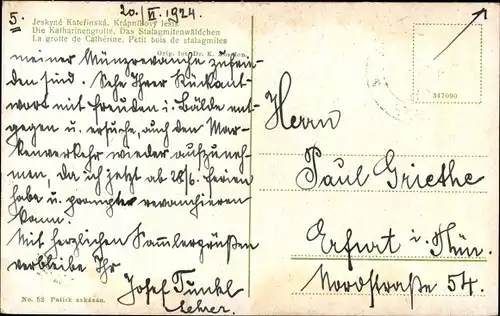 5.
20./VI. 1924.
Jeskyně Kateřinská. Krápníkový lesík
Die Katharinengrotte, Das Stalagmitenwäldchen
La grotte de Cathérine. Petit bois de stalagmites
Orig. fot. Dr. K.
meiner Münzrevanche zufrie-
den sind. Sehe Ihrer Rückant-
wort mit Freuden i. Bälde ent-
gegen u. ersuche, auch den Mar-
kenverkehr wieder aufzuneh-
men, da ich jetzt ab 28/6. Ferien
habe u. prompte revanchieren
kann.
Mit herzlichen Sammlergrüßen
verbleibe Ihr
Josef Tunkl
Lehrer.
No. 52 Patisk zakázán.
347090
Herrn
Paul Griethe
Erfurt i. Thür.
Nordstraße 54.